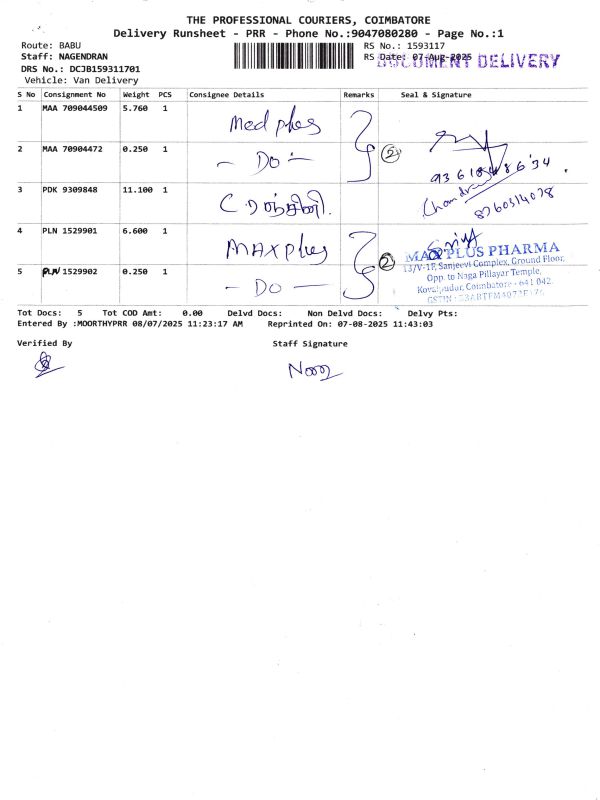 THE PROFESSIONAL COURIERS, COIMBATORE
Delivery Runsheet - PRR - Phone No.:9047080280 - Page No.:1
Route: BABU
RS No.: 1593117
Staff: NAGENDRAN
RS Date: 07-Aug-2025
DOCUMENT DELIVERY
DRS No.: DCJB159311701
Vehicle: Van Delivery
S No Consignment No Weight PCS Consignee Details Remarks Seal & Signature
1 MAA 709044509 5.760 1 Medplus
2 MAA 70904472 0.250 1 - Do -
2
3 PDK 9309848 11.100 1
8760514078
4 PLN 1529901 6.600 1 MAXplus
MAX PLUS PHARMA
13/V-1F, Sanjeevi Complex, Ground Floor,
Opp. to Naga Pillayar Temple,
2
5 PLN 1529902 0.250 1 - DO -
Coimbatore - 641 042.
Tot Docs: 5 Tot COD Amt: 0.00 Delvd Docs: Non Delvd Docs: Delvy Pts:
Entered By :MOORTHYPRR 08/07/2025 11:23:17 AM Reprinted On: 07-08-2025 11:43:03
Verified By Staff Signature